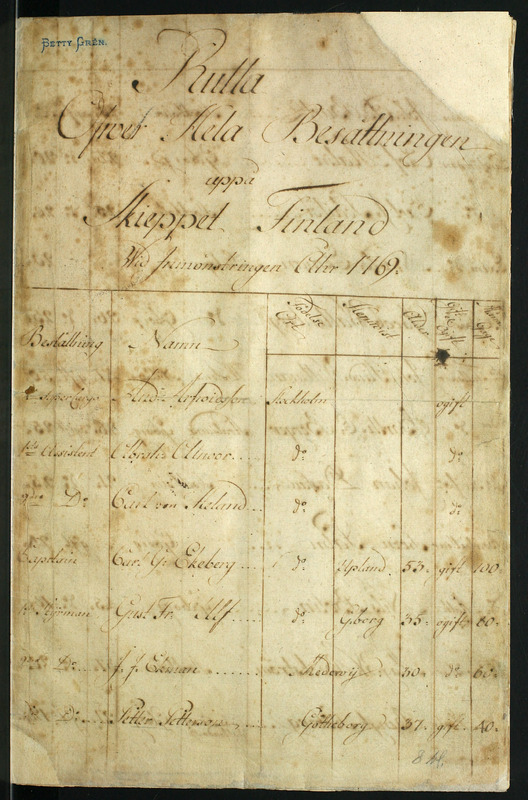 BETTY GREN.
Rulla
Öfver Hela Besättningen
uppå
Skieppet Finland
Wid inmönstringen Åhr 1769.
Beställning Namn Födelse Ort Hemvist Ålder Gift Ogift
Arfwidsson Stockholm ogift
1ste Assistent Oliveor... do do
2dre Do Carl von Heland... do do
Captein Carl G. Ekeberg... do Upland 53. gift 100.
1ste Styrman Gust. Fr. Alf..... do Gborg 35. ogift 80.
2dre Do J. J. Ekman Medewij 30. do 60.
3die Do Petter Pettersson Götheborg 37. gift 40.